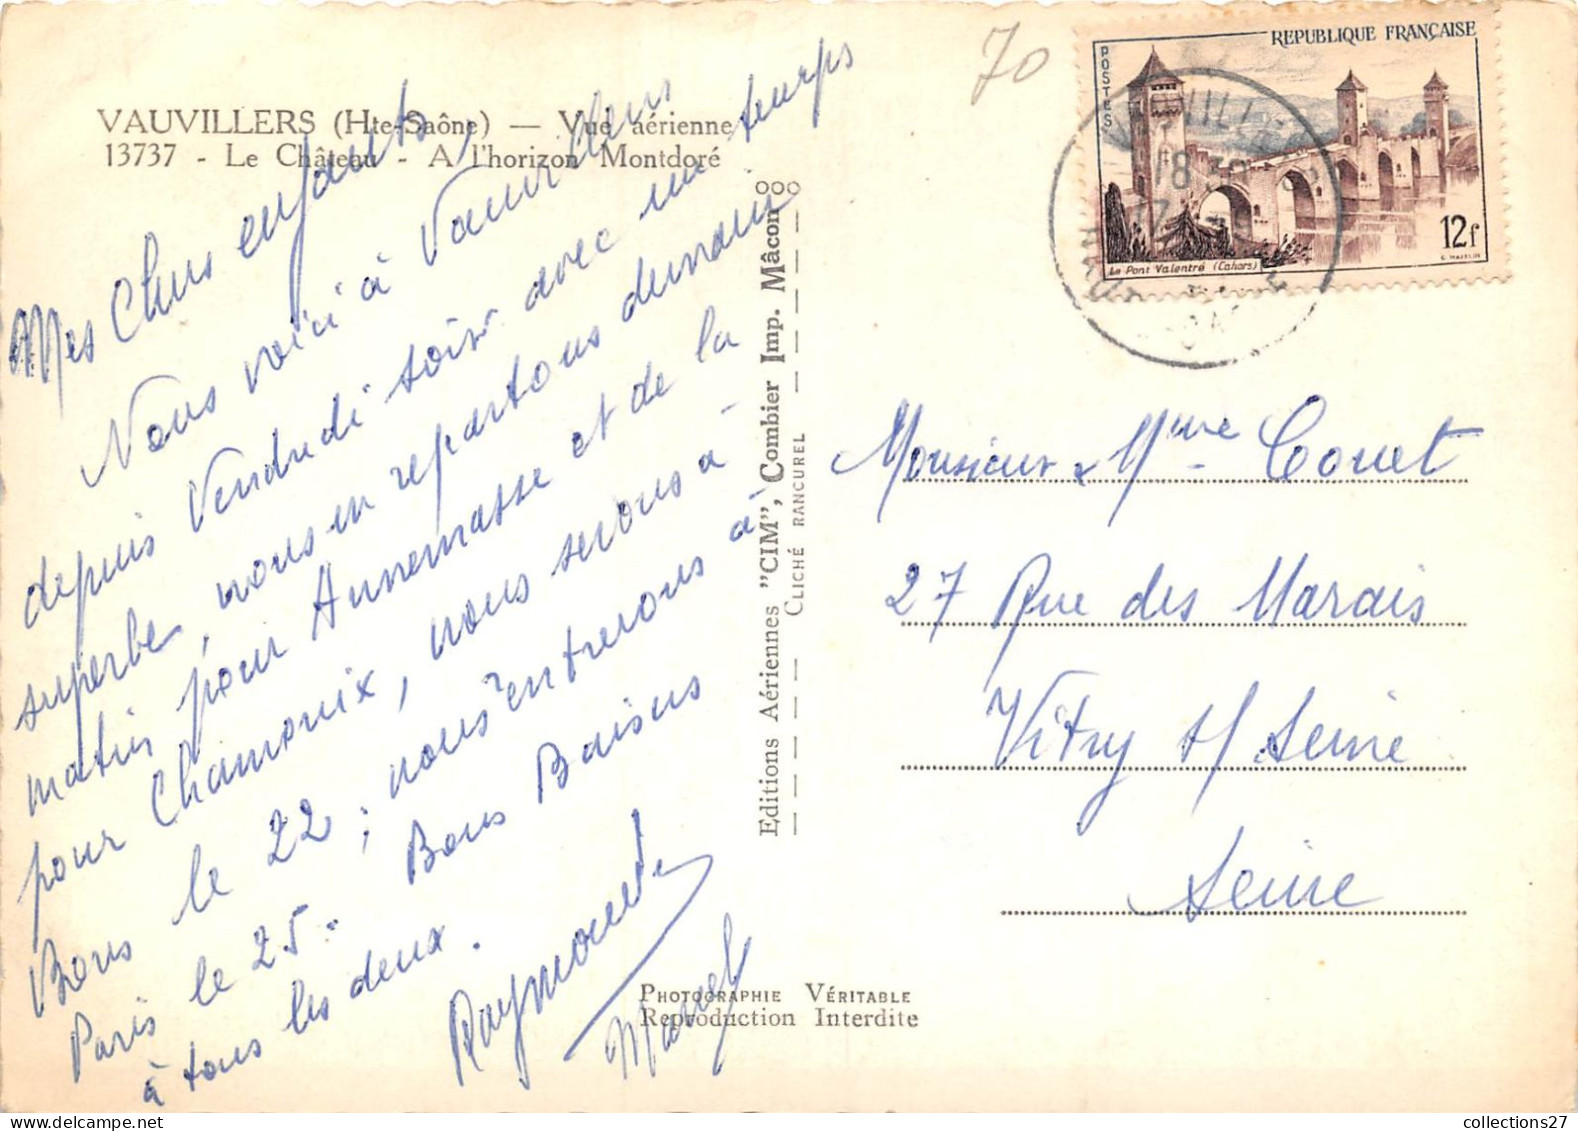 VAUVILLERS (Hte-Saône) — Vue aérienne
13737 - Le Château - A l'horizon Montdoré
Mes Chers enfants,
Nous voici à Vauvillers
depuis Vendredi soir avec un temps
superbe, nous en repartons demain
matin pour Annemasse et de la
pour Chamonix, nous serons à
Bons le 22 ; nous rentrerons à
Paris le 25. Bons Baisers
à tous les deux.
Raymonde
Marcel
Editions Aériennes "CIM", Combier Imp. Mâcon
CLICHÉ RANCUREL
PHOTOGRAPHIE VÉRITABLE
Reproduction Interdite
70
REPUBLIQUE FRANÇAISE
POSTES
12f
Le Pont Valentré (Cahors)
18 30
Monsieur & Mme Couet
27 Rue des Marais
Vitry s/ Seine
Seine
collections27